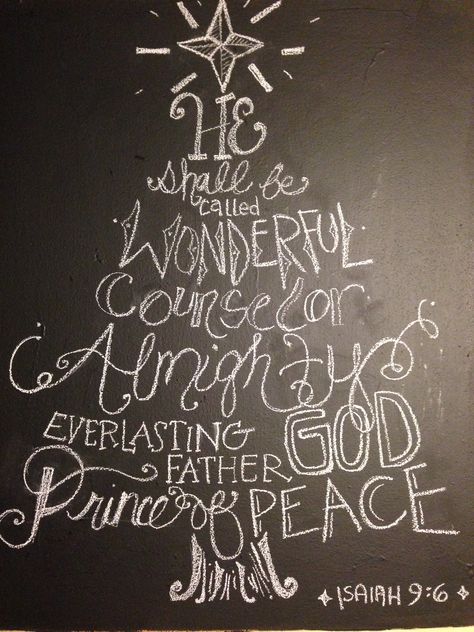 HE
shall be
called
WONDERFUL
Counselor
Almighty
GOD
EVERLASTING
FATHER
Prince of PEACE
ISAIAH 9:6